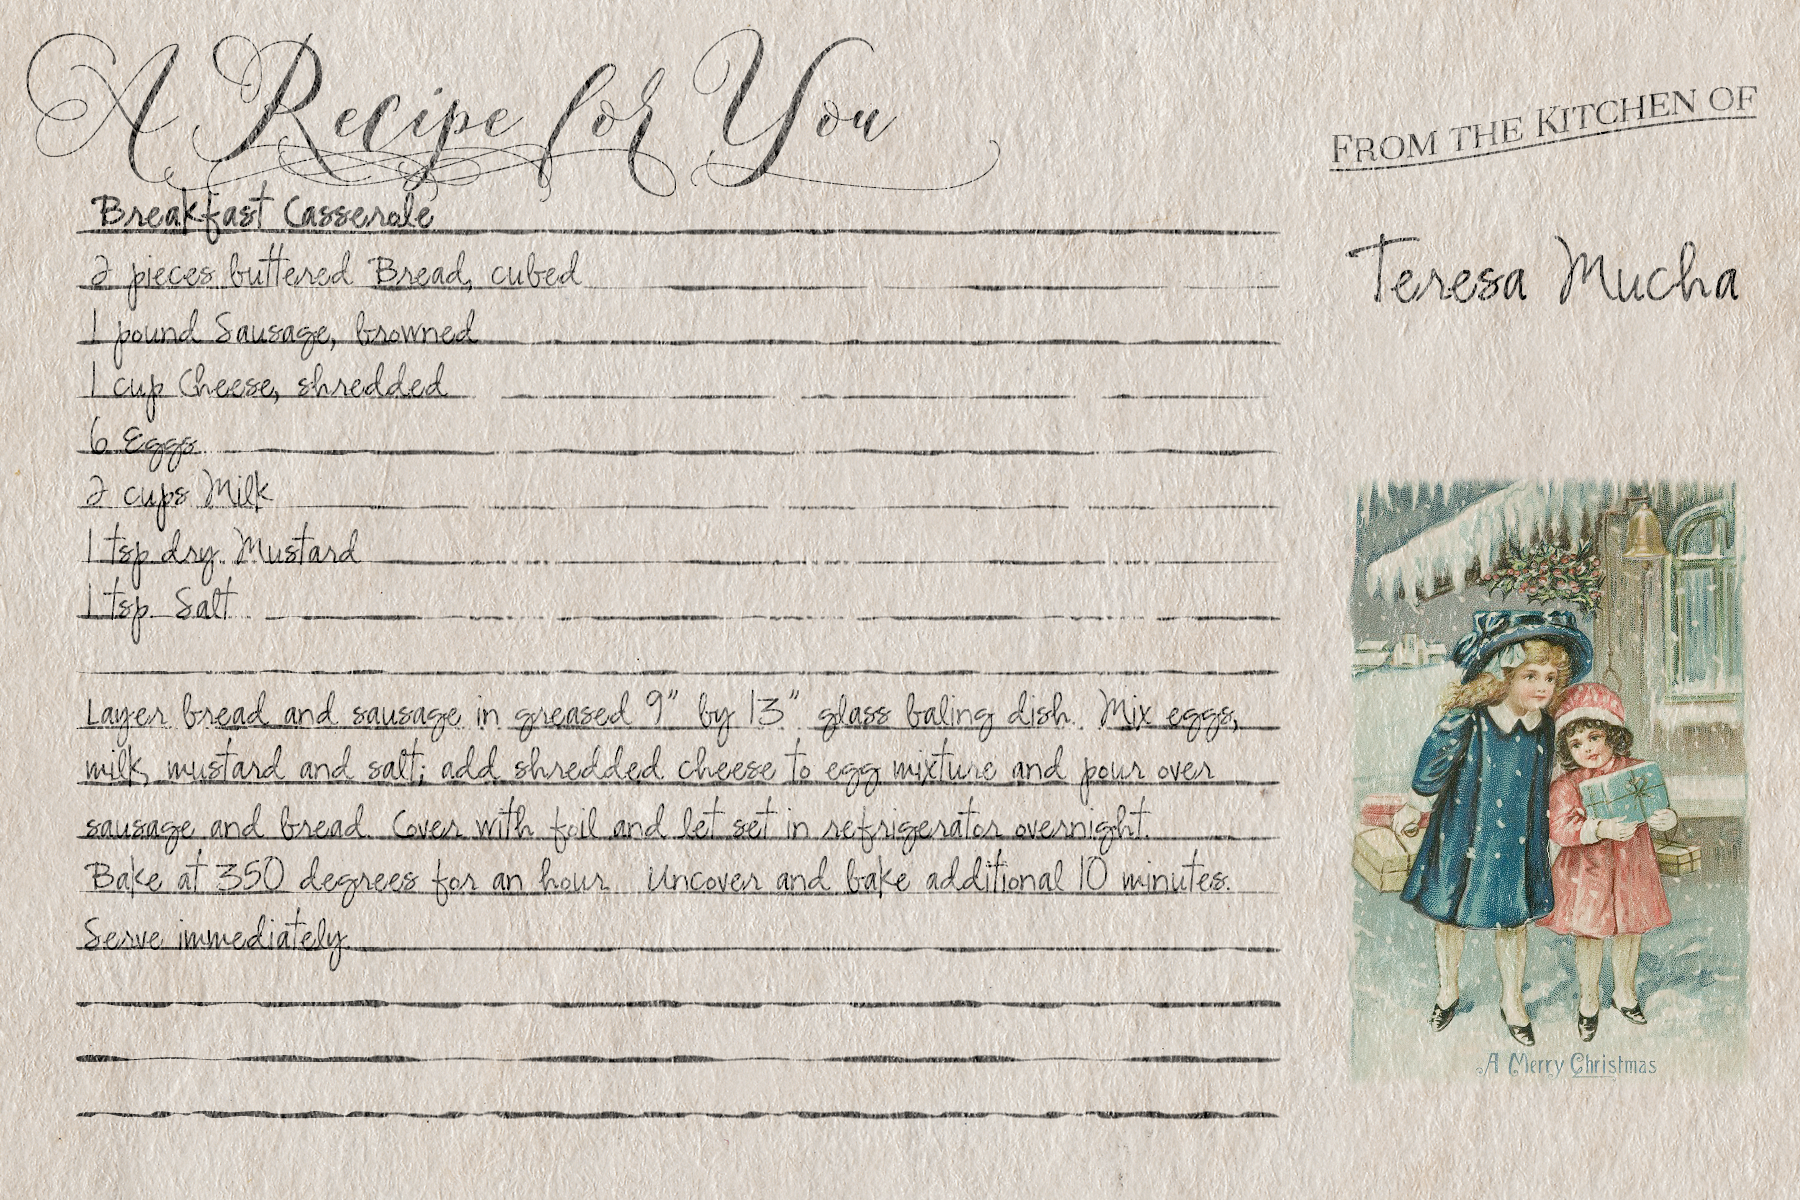 A Recipe for You
FROM THE KITCHEN OF
Teresa Mucha
Breakfast Casserole
2 pieces buttered Bread, cubed
1 pound Sausage, browned
1 cup Cheese, shredded
6 Eggs
2 cups Milk
1 tsp dry Mustard
1 tsp Salt
Layer bread and sausage in greased 9" by 13" glass baling dish. Mix eggs,
milk, mustard and salt; add shredded cheese to egg mixture and pour over
sausage and bread. Cover with foil and let set in refrigerator overnight.
Bake at 350 degrees for an hour. Uncover and bake additional 10 minutes.
Serve immediately.
A Merry Christmas